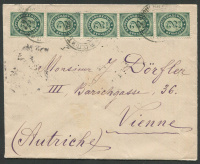 Monsieur J. Dörfler
III Barichgasse 36.
Vienne
(Autriche)